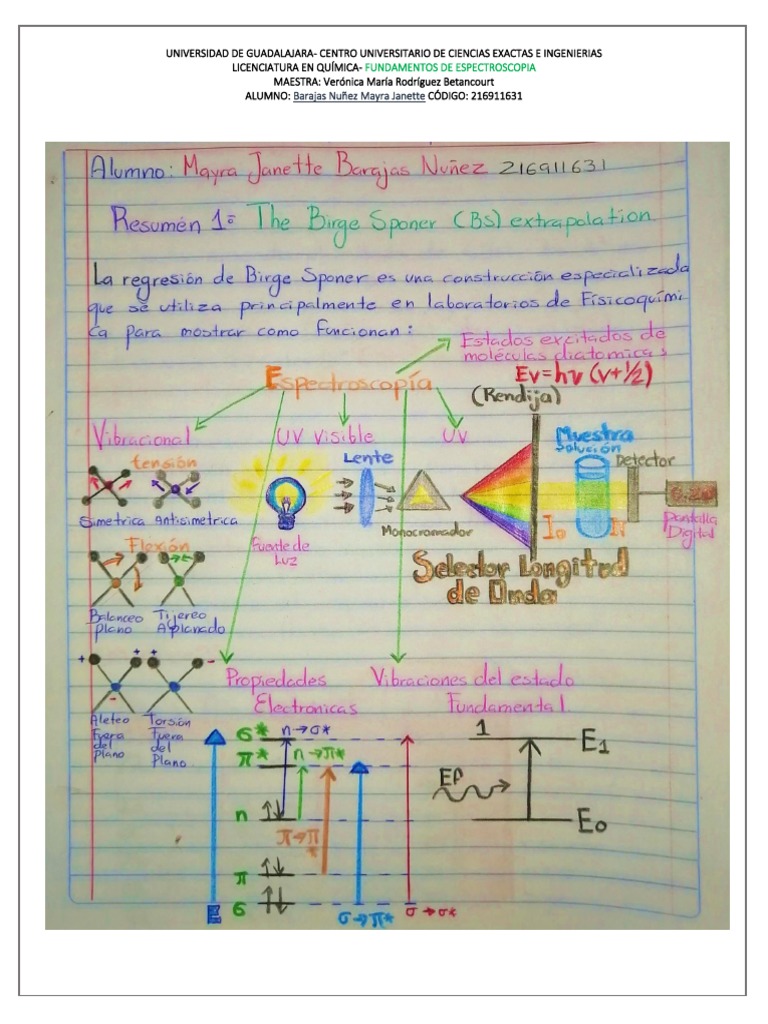 UNIVERSIDAD DE GUADALAJARA- CENTRO UNIVERSITARIO DE CIENCIAS EXACTAS E INGENIERIAS
LICENCIATURA EN QUÍMICA- FUNDAMENTOS DE ESPECTROSCOPIA
MAESTRA: Verónica María Rodríguez Betancourt
ALUMNO: Barajas Nuñez Mayra Janette CÓDIGO: 216911631
Alumno: Mayra Janette Barajas Nuñez 216911631
Resumén 1: The Birge Sponer (BS) extrapolation
La regresión de Birge Sponer es una construcción especializada
que se utiliza principalmente en laboratorios de Fisicoquími
ca para mostrar como funcionan:
Estados excitados de
moléculas diatomicas
Ev=hν(v+1/2)
Espectroscopía
(Rendija)
Vibracional
UV Visible
UV
Muestra
Solución
tensión
Lente
Detector
Simetrica Antisimetrica
Monocromador
I₀
Pantalla
Digital
Flexión
Fuente de
Luz
Selector Longitud
de Onda
Balanceo
Plano
Tijereo
Aplanado
+ + + -
-
Propiedades
Electronicas
Vibraciones del estado
Fundamental
Aleteo
Fuera
del
Plano
Torsión
Fuera
del
Plano
σ* n→σ*
π* n→π*
1
E₁
n
E₀
π→π*
π
σ
E
σ→π*
σ→σ*